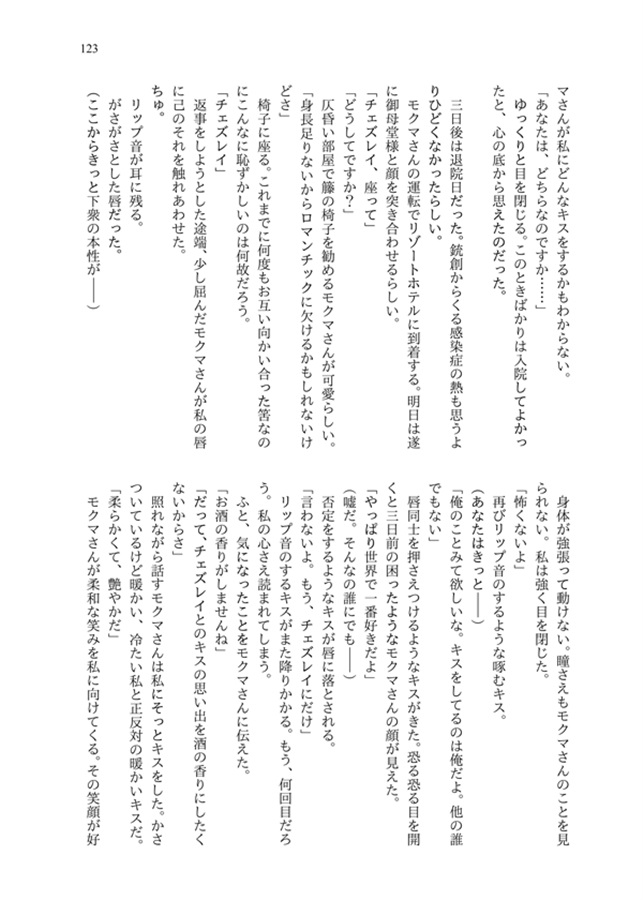 123
マさんが私にどんなキスをするかもわからない。
「あなたは、どちらなのですか……」
ゆっくりと目を閉じる。このときばかりは入院してよかっ
たと、心の底から思えたのだった。
三日後は退院日だった。銃創からくる感染症の熱も思うよ
りひどくなかったらしい。
モクマさんの運転でリゾートホテルに到着する。明日は遂
に御母堂様と顔を突き合わせるらしい。
「チェズレイ、座って」
「どうしてですか？」
仄昏い部屋で籐の椅子を勧めるモクマさんが可愛らしい。
「身長足りないからロマンチックに欠けるかもしれないけ
どさ」
椅子に座る。これまでに何度もお互い向かい合った筈なの
にこんなに恥ずかしいのは何故だろう。
「チェズレイ」
返事をしようとした途端、少し屈んだモクマさんが私の唇
に己のそれを触れあわせた。
ちゅ。
リップ音が耳に残る。
がさがさとした唇だった。
（ここからきっと下衆の本性が――）
身体が強張って動けない。瞳さえもモクマさんのことを見
られない。私は強く目を閉じた。
「怖くないよ」
再びリップ音のするような啄むキス。
（あなたはきっと――）
「俺のことみて欲しいな。キスをしてるのは俺だよ。他の誰
でもない」
唇同士を押さえつけるようなキスがきた。恐る恐る目を開
くと三日前の困ったようなモクマさんの顔が見えた。
「やっぱり世界で一番好きだよ」
（嘘だ。そんなの誰にでも――）
否定をするようなキスが唇に落とされる。
「言わないよ。もう、チェズレイにだけ」
リップ音のするキスがまた降りかかる。もう、何回目だろ
う。私の心さえ読まれてしまう。
ふと、気になったことをモクマさんに伝えた。
「お酒の香りがしませんね」
「だって、チェズレイとのキスの思い出を酒の香りにしたく
ないからさ」
照れながら話すモクマさんは私にそっとキスをした。かさ
ついているけど暖かい、冷たい私と正反対の暖かいキスだ。
「柔らかくて、艶やかだ」
モクマさんが柔和な笑みを私に向けてくる。その笑顔が好